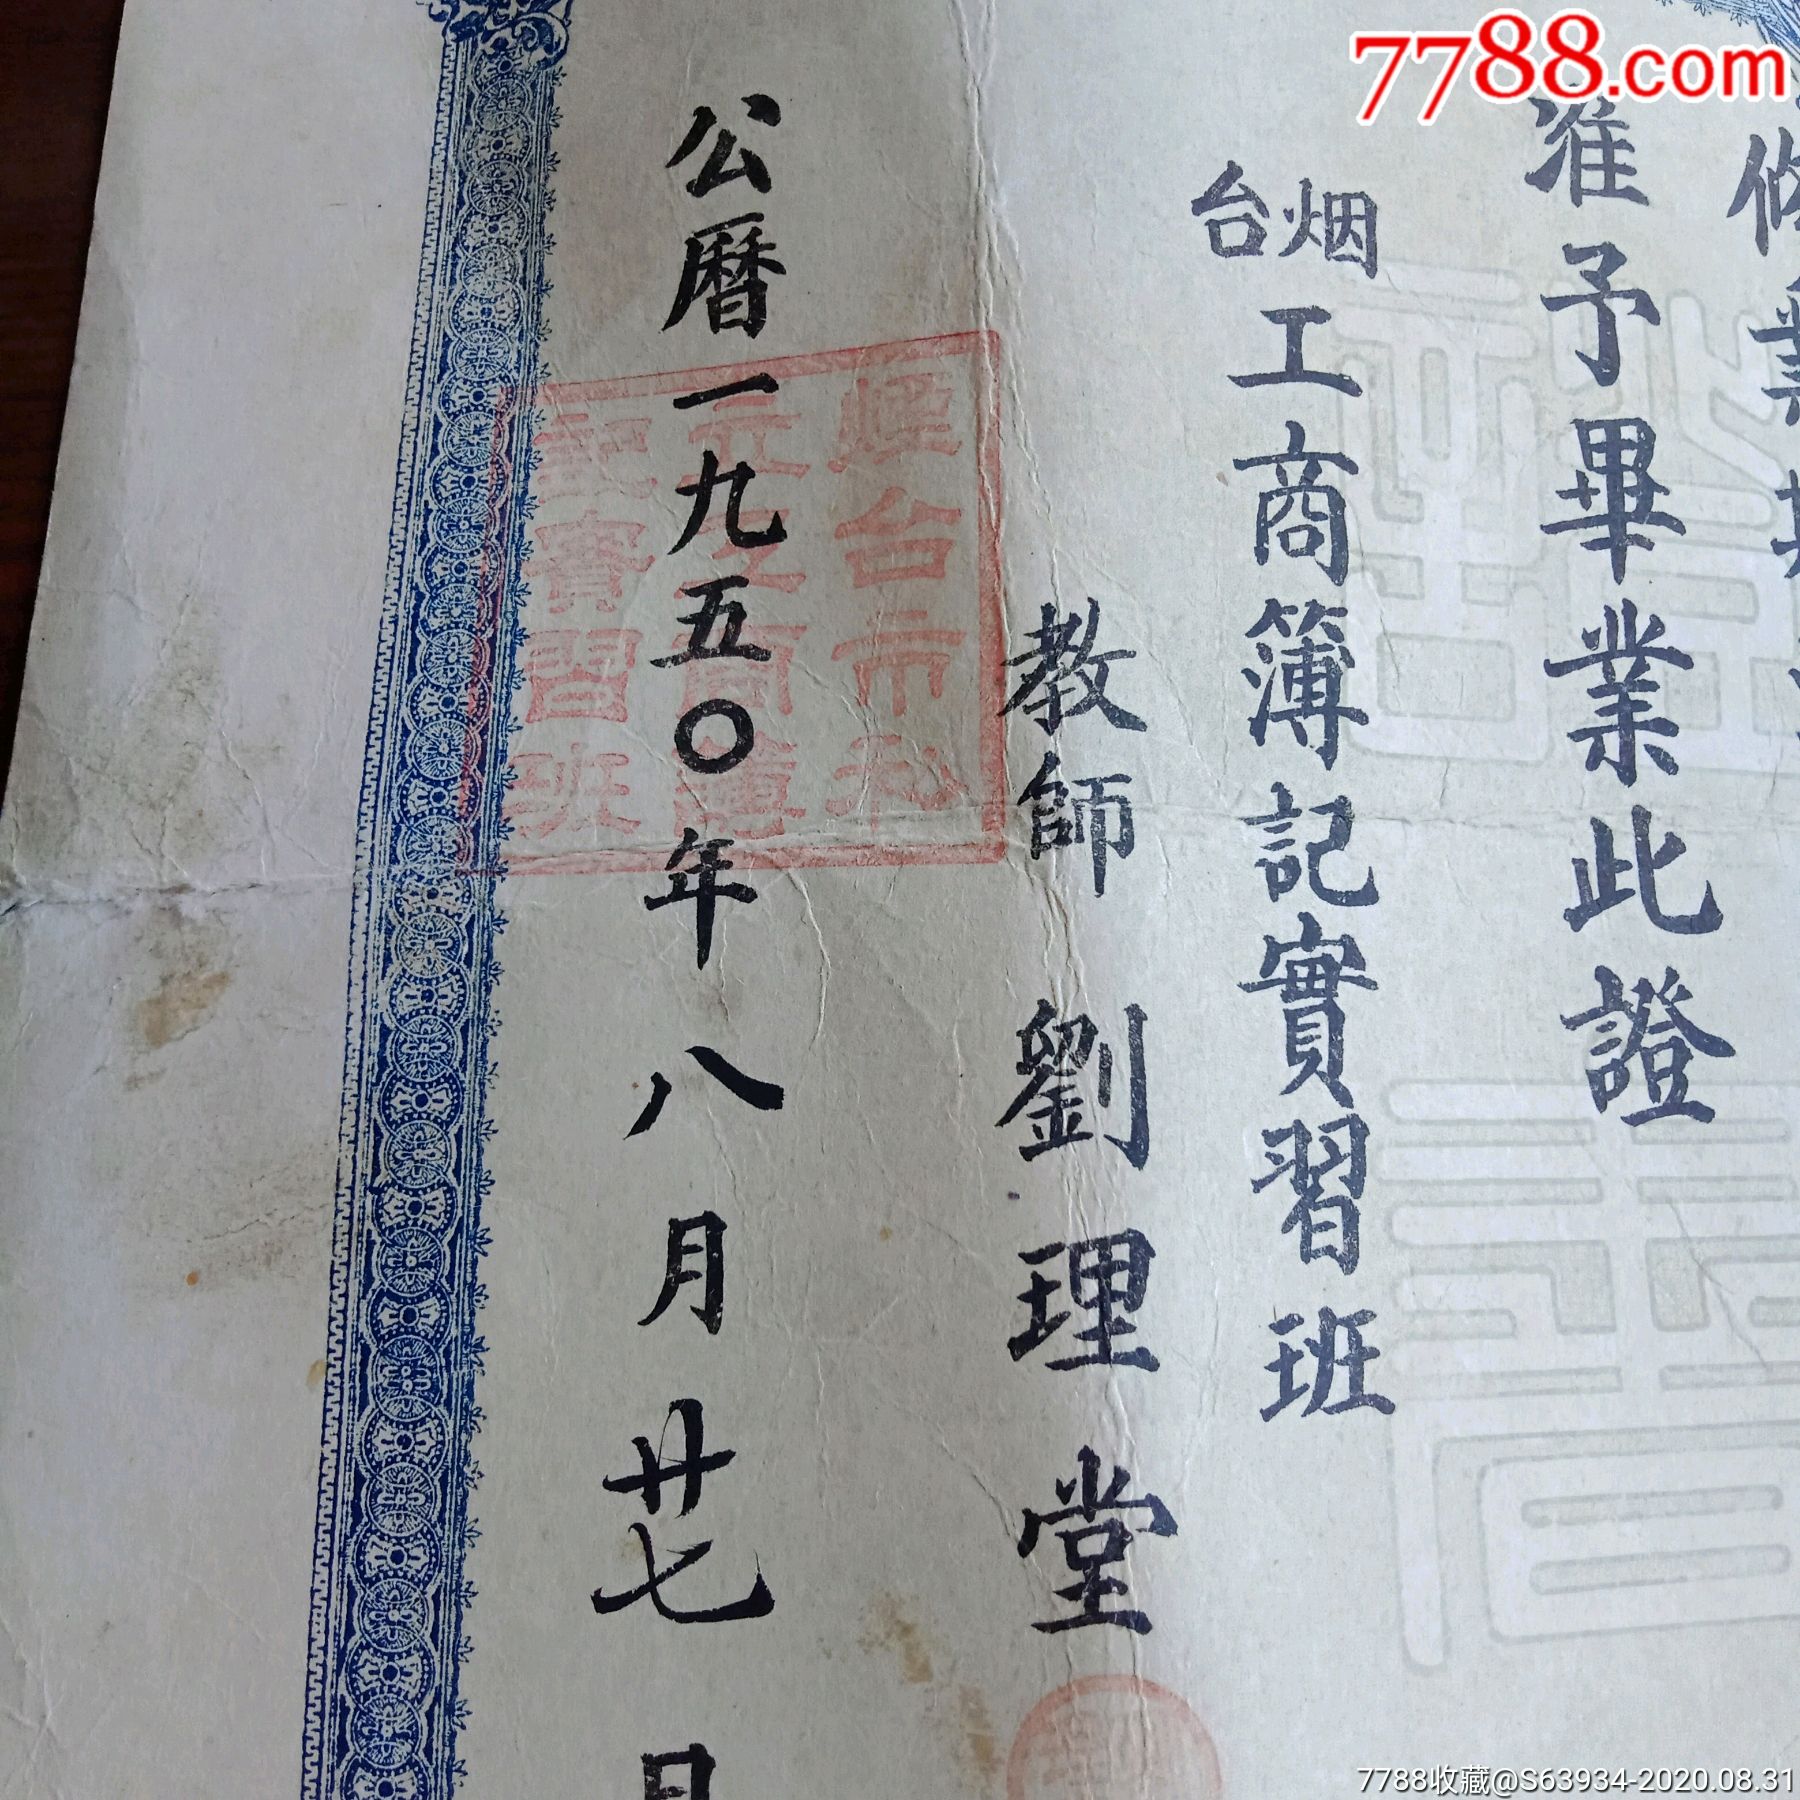 7788.com
修業期
准予畢業此證
烟台
工商簿記實習班
教師 劉理堂
公曆一九五〇年八月廿七日
煙台市私
立工商簿
記實習班
7788收藏@S63934-2020.08.31